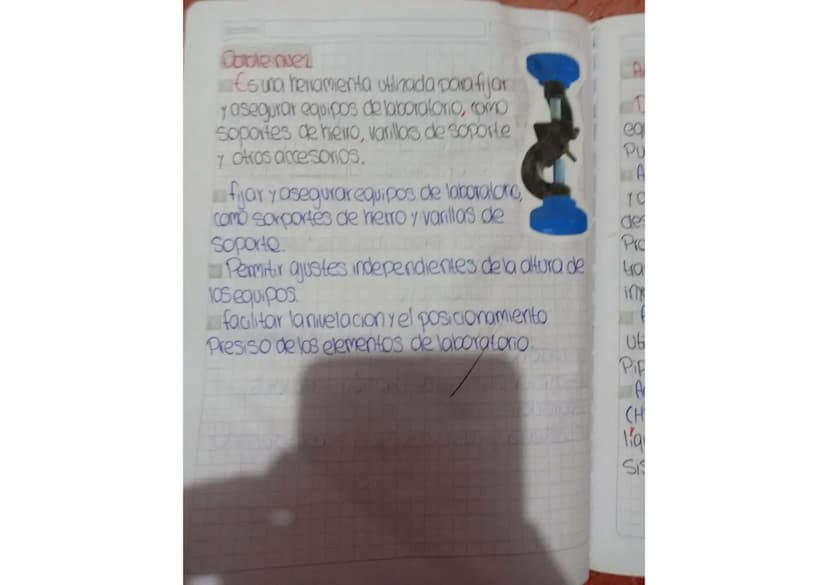 Doble nuez
Es una herramienta utilizada para fijar
y asegurar equipos de laboratorio, como
soportes de hierro, varillas de soporte
y otros accesorios.
fijar y asegurar equipos de laboratoro,
como sorportes de hierro y varillas de
soporte.
Permitir ajustes independientes de la altura de
los equipos.
facilitar la nivelacion y el posicionamiento
Presiso de los elementos de laboratorio.
eq
Pu
A
y a
des
Pro
tra
Uti
Pip
A
(H
liq
Sis